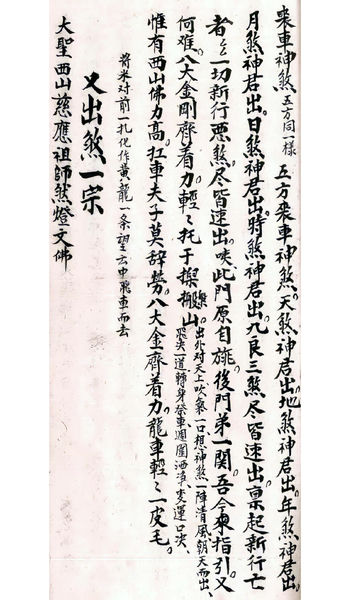 喪車神煞五方同一樣　五方喪車神煞天煞神君出地煞神君出年煞神君出
月煞神君出日煞神君出時煞神君出九良三煞尽皆速出稟起新行亡
者〻一切新行悪煞尽皆速出唉此門原自施後門弟一関吾今東指引又
何难八大金剛齊着力輕〻托于搬山出外对天上吹气一口想神煞一陣清風朝天而出
飛尖一道轉身祭車週圍洒净变運口决
惟有西山佛力高扛車夫子莫辞劳八大金齊着力龍車輕〻一皮毛
将米对前一扎化作黄龍一条望云中飛車而去
又出煞一宗
大聖西山慈應祖師然燈文佛